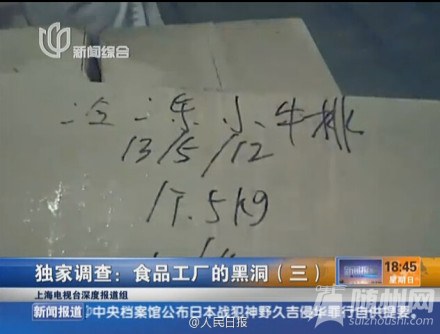 新闻综合
冷冻小牛排
13/5/12
17.5kg
独家调查：食品工厂的黑洞（三）
18:45
星期日
上海电视台深度报道组
新闻报道 中央档案馆公布日本战犯神野久吉侵华罪行自供提要
@人民日报
随州网
suizhouw.com